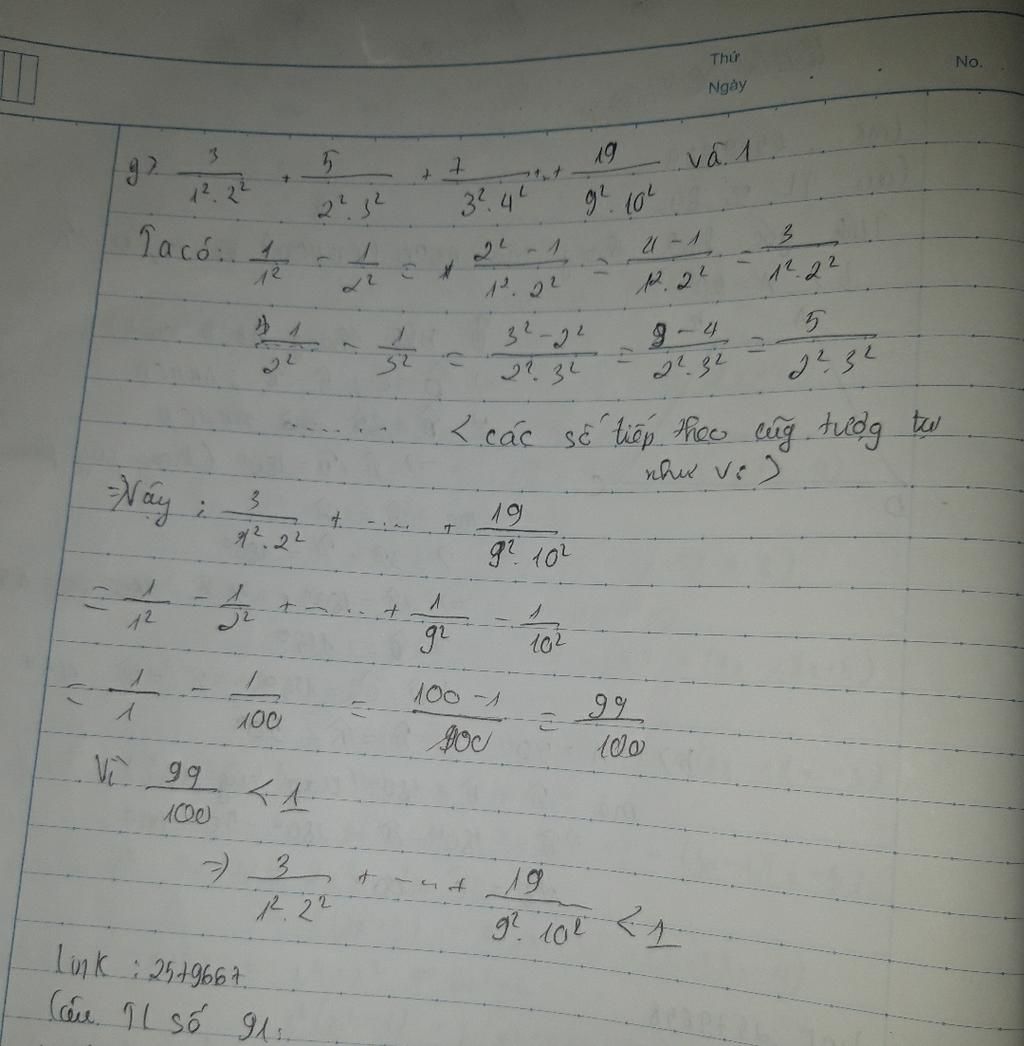 Thứ
Ngày
No.
g> 3/1².2² + 5/2².3² + 7/3².4² +...+ 19/9².10² và 1
Ta có: 1/1² - 1/2² = 2² - 1/1².2² = 4 - 1/1².2² = 3/1².2²
1/2² - 1/3² = 3² - 2²/2².3² = 9 - 4/2².3² = 5/2².3²
....... < các số tiếp theo cũg tươg tự
như v: )
=> Vây : 3/1².2² + ..... + 19/9².10²
= 1/1² - 1/2² + ..... + 1/9² - 1/10²
= 1/1 - 1/100 = 100 - 1/100 = 99/100
Vì 99/100 < 1
=> 3/1².2² + .... + 19/9².10² < 1
link : 2579667
Câu TL số 91: